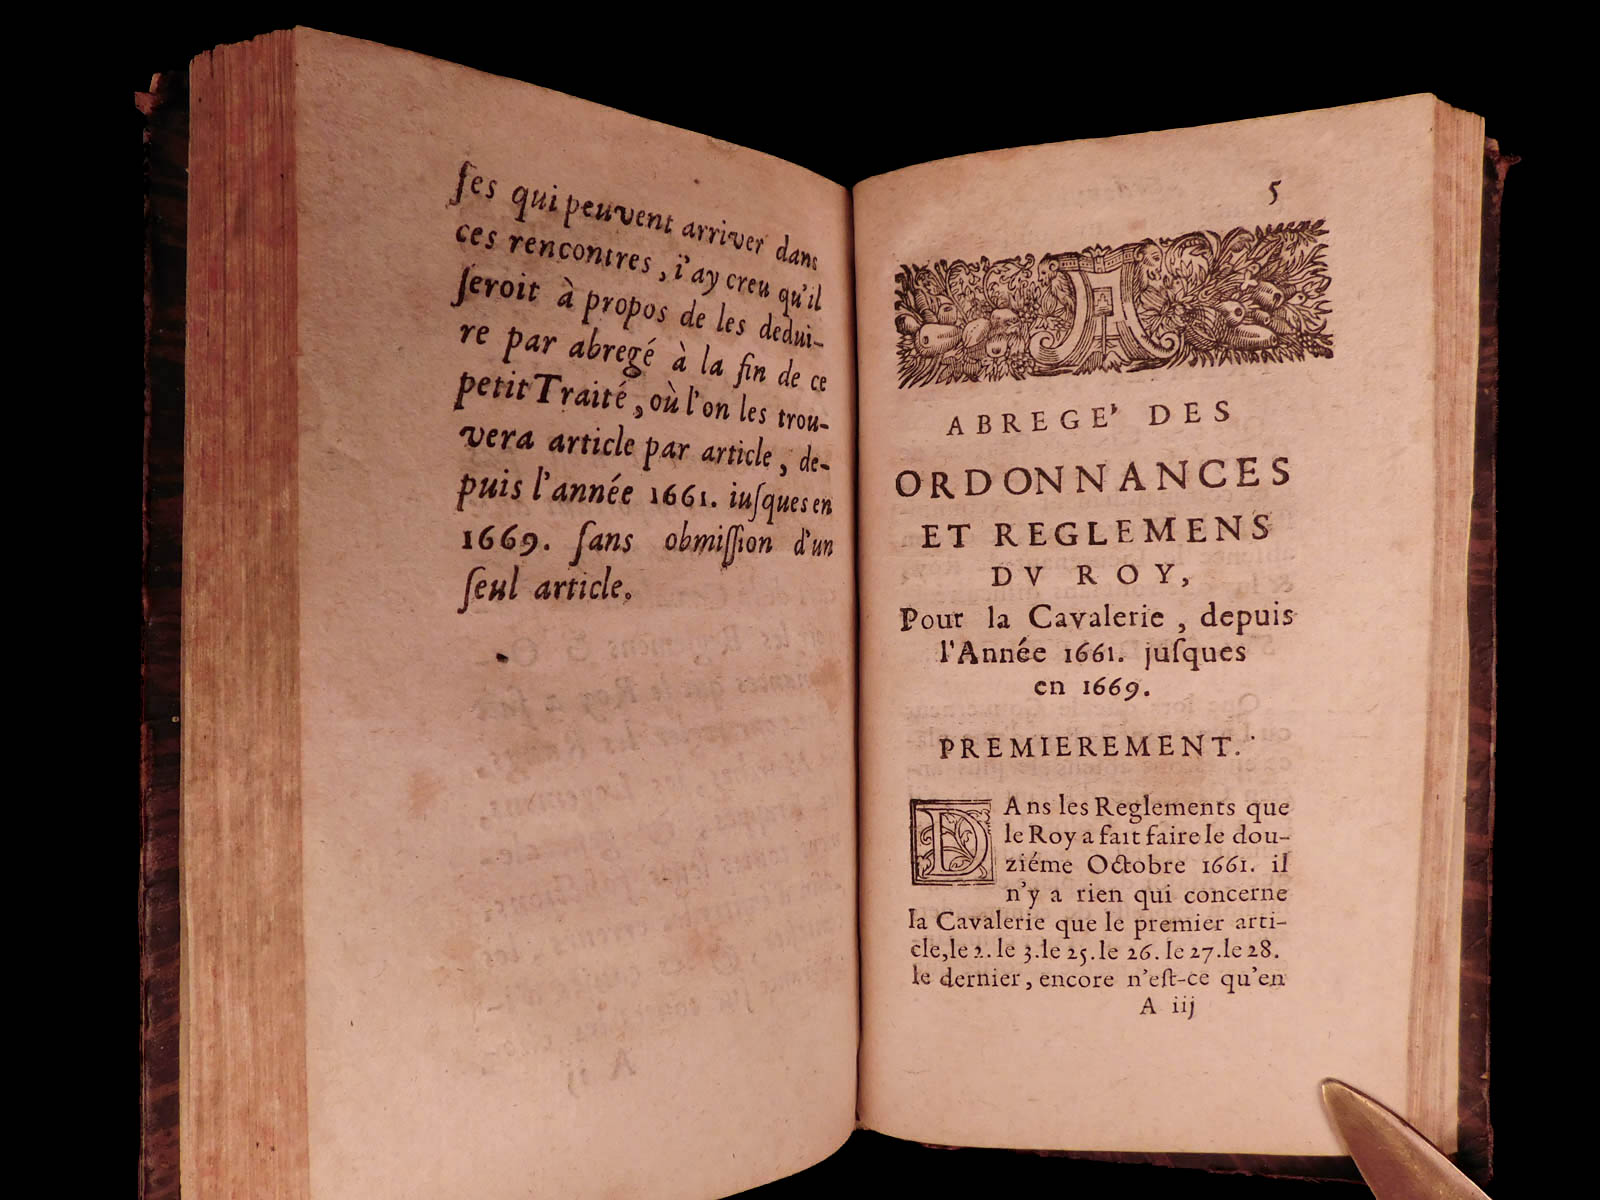 ſes qui peuvent arriver dans
ces rencontres, i'ay creu qu'il
ſeroit à propos de les dedui-
re par abregé à la fin de ce
petit Traité, où l'on les trou-
vera article par article, de-
puis l'année 1661. iuſques en
1669. ſans obmiſſion d'un
ſeul article.
5
ABREGE' DES
ORDONNANCES
ET REGLEMENS
DV ROY,
Pour la Cavalerie, depuis
l'Année 1661. juſques
en 1669.
PREMIEREMENT.
DAns les Reglements que
le Roy a fait faire le dou-
ziéme Octobre 1661. il
n'y a rien qui concerne
la Cavalerie que le premier arti-
cle, le 2. le 3. le 25. le 26. le 27. le 28.
le dernier, encore n'eſt-ce qu'en
A iij